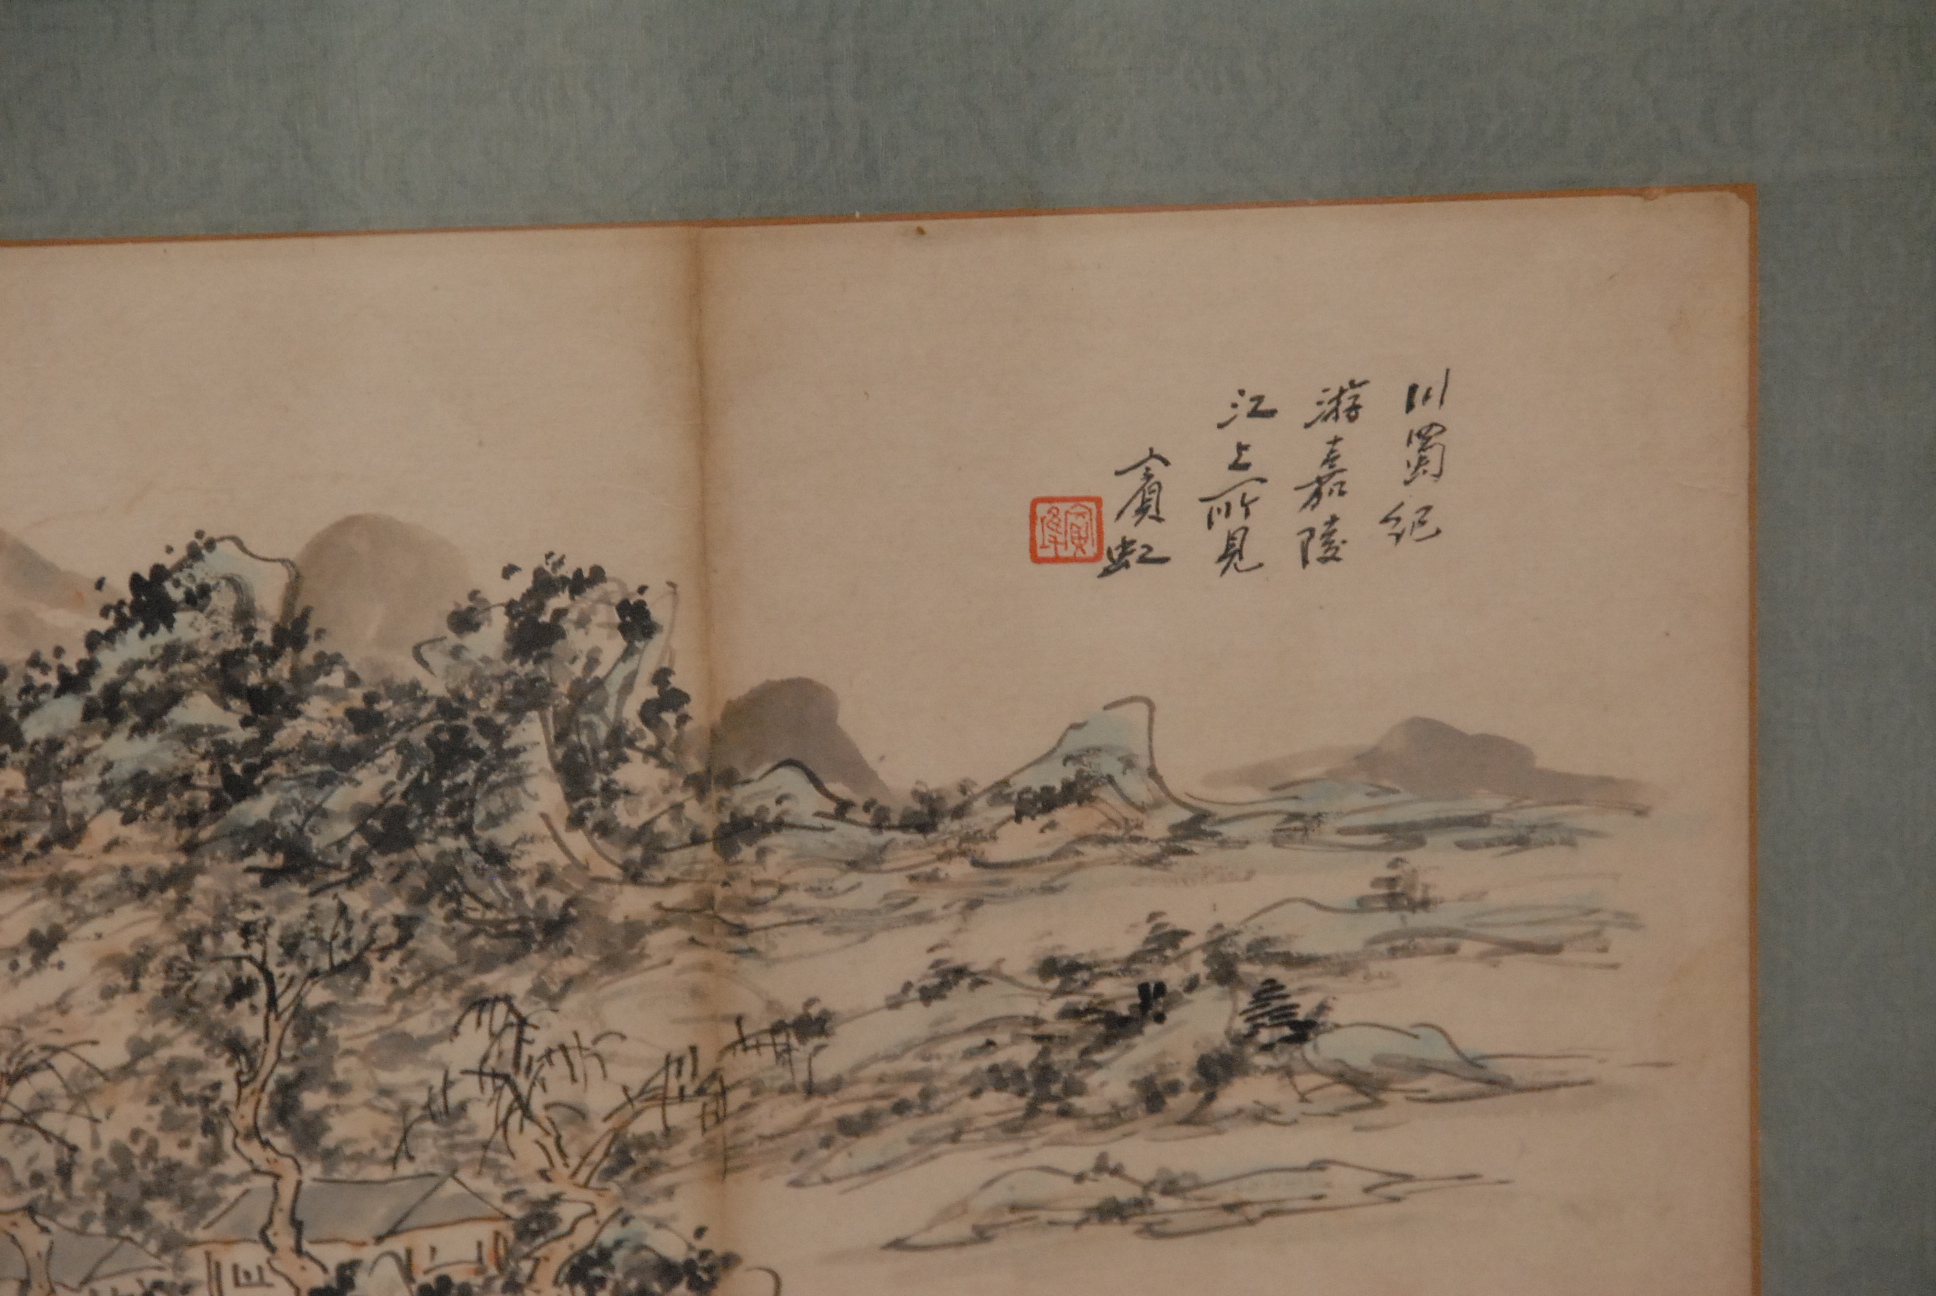 川蜀紀
游嘉陵
江上所見
賓虹